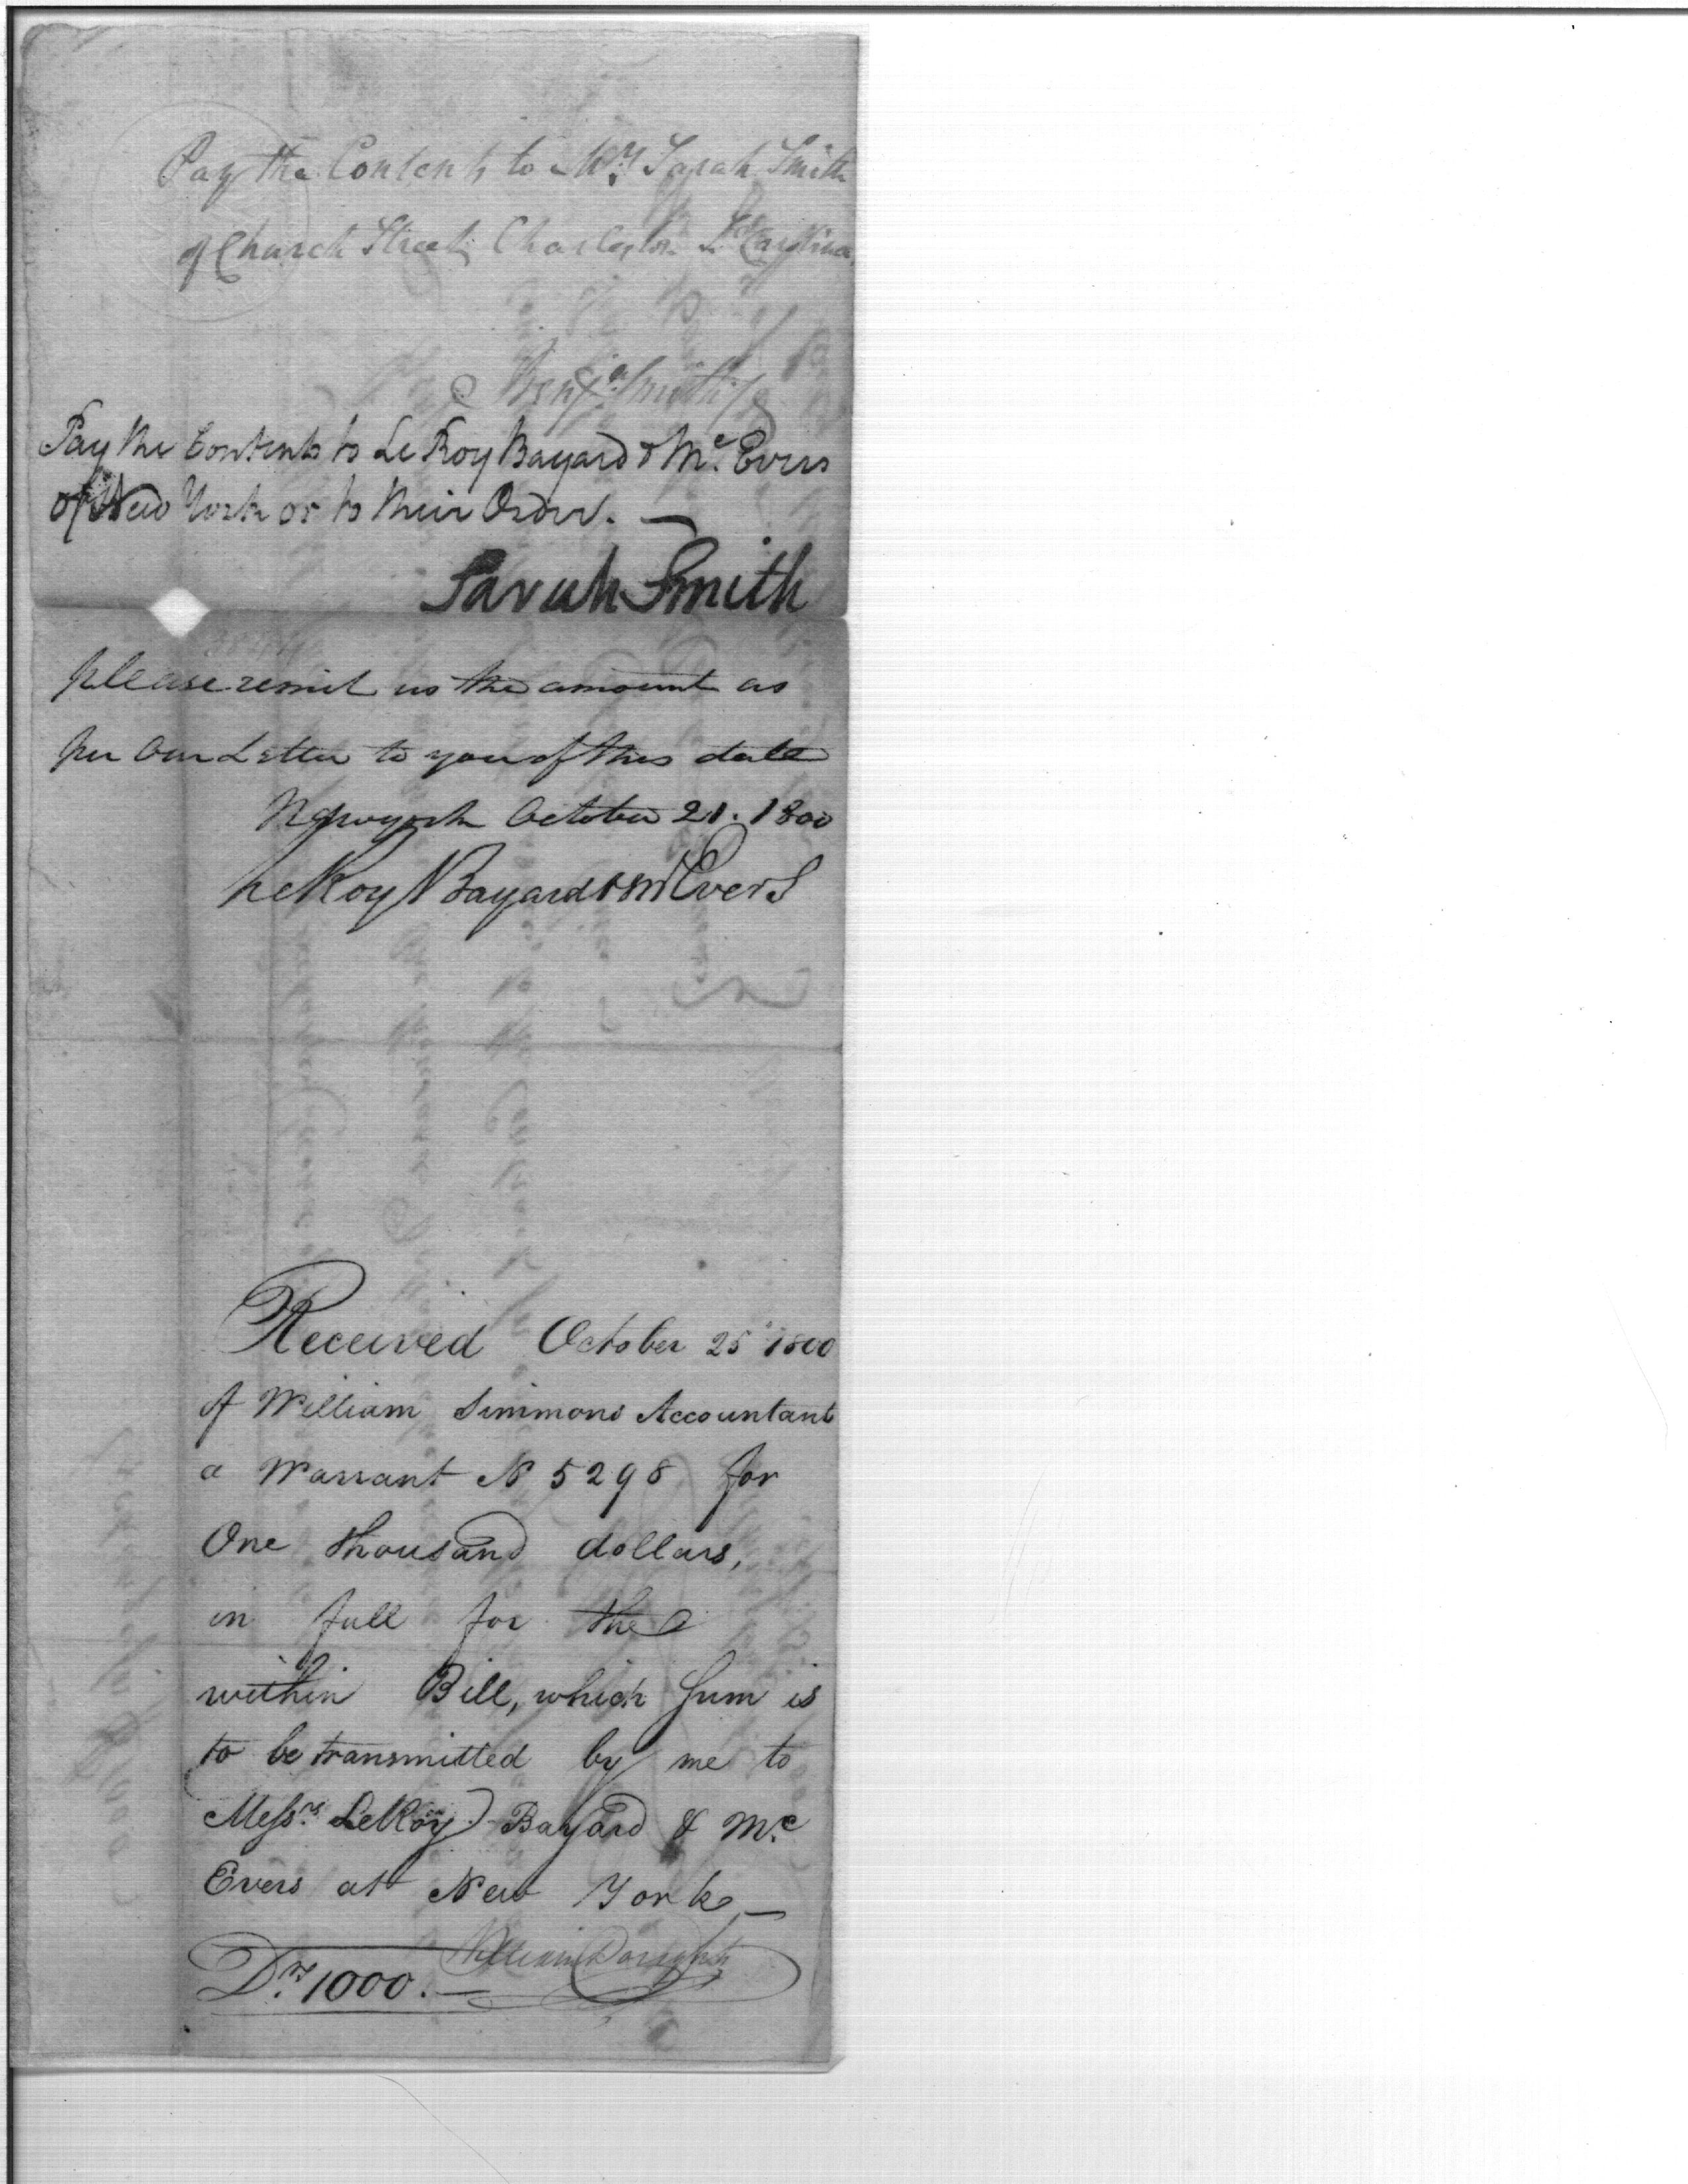 Pay the Contents to Mrs. Sarah Smith
of Church Street Charleston So Carolina.
Benja. Smith
Pay the Contents to Le Roy Bayard & Mc. Evers
of New York or to their Order. —
Sarah Smith
please remit us the amount as
per our Letter to you of this date
Newyork October 21. 1800
LeRoy Bayard & McEvers
Received October 25 1800
of William Simmons Accountant
a Warrant No 5298 for
One thousand dollars,
in full for the
within Bill, which Sum is
to be transmitted by me to
Messrs. LeRoy Bayard & Mc.
Evers at New York —
William
Drs. 1000. —